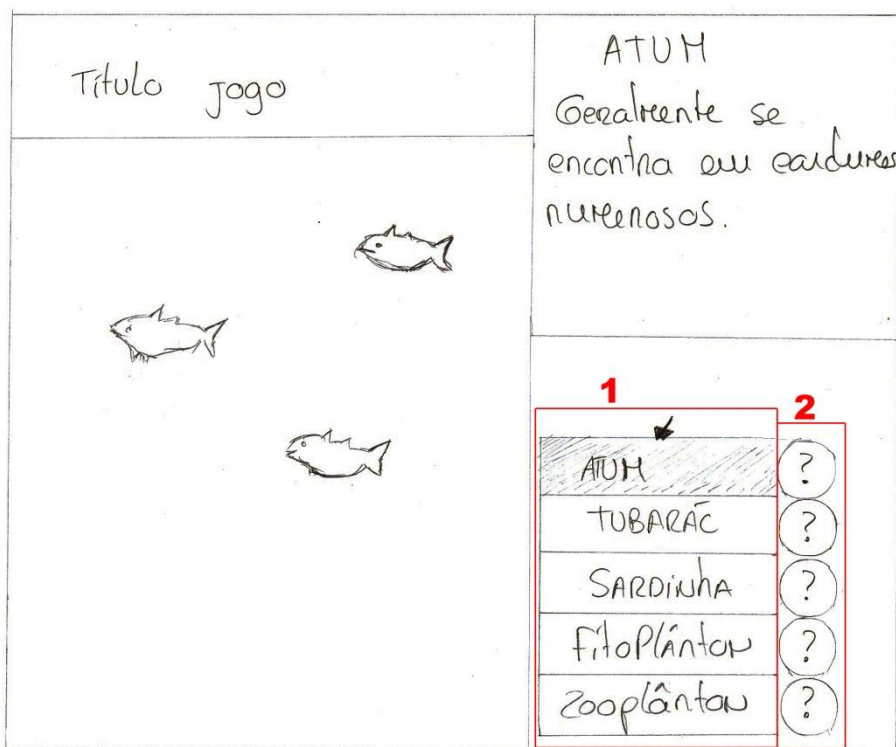 Título jogo
ATUM
Geralmente se
encontra em cardumes
numerosos.
1
2
ATUM ?
TUBARÃO ?
SARDINHA ?
FitoPlânton ?
Zooplânton ?